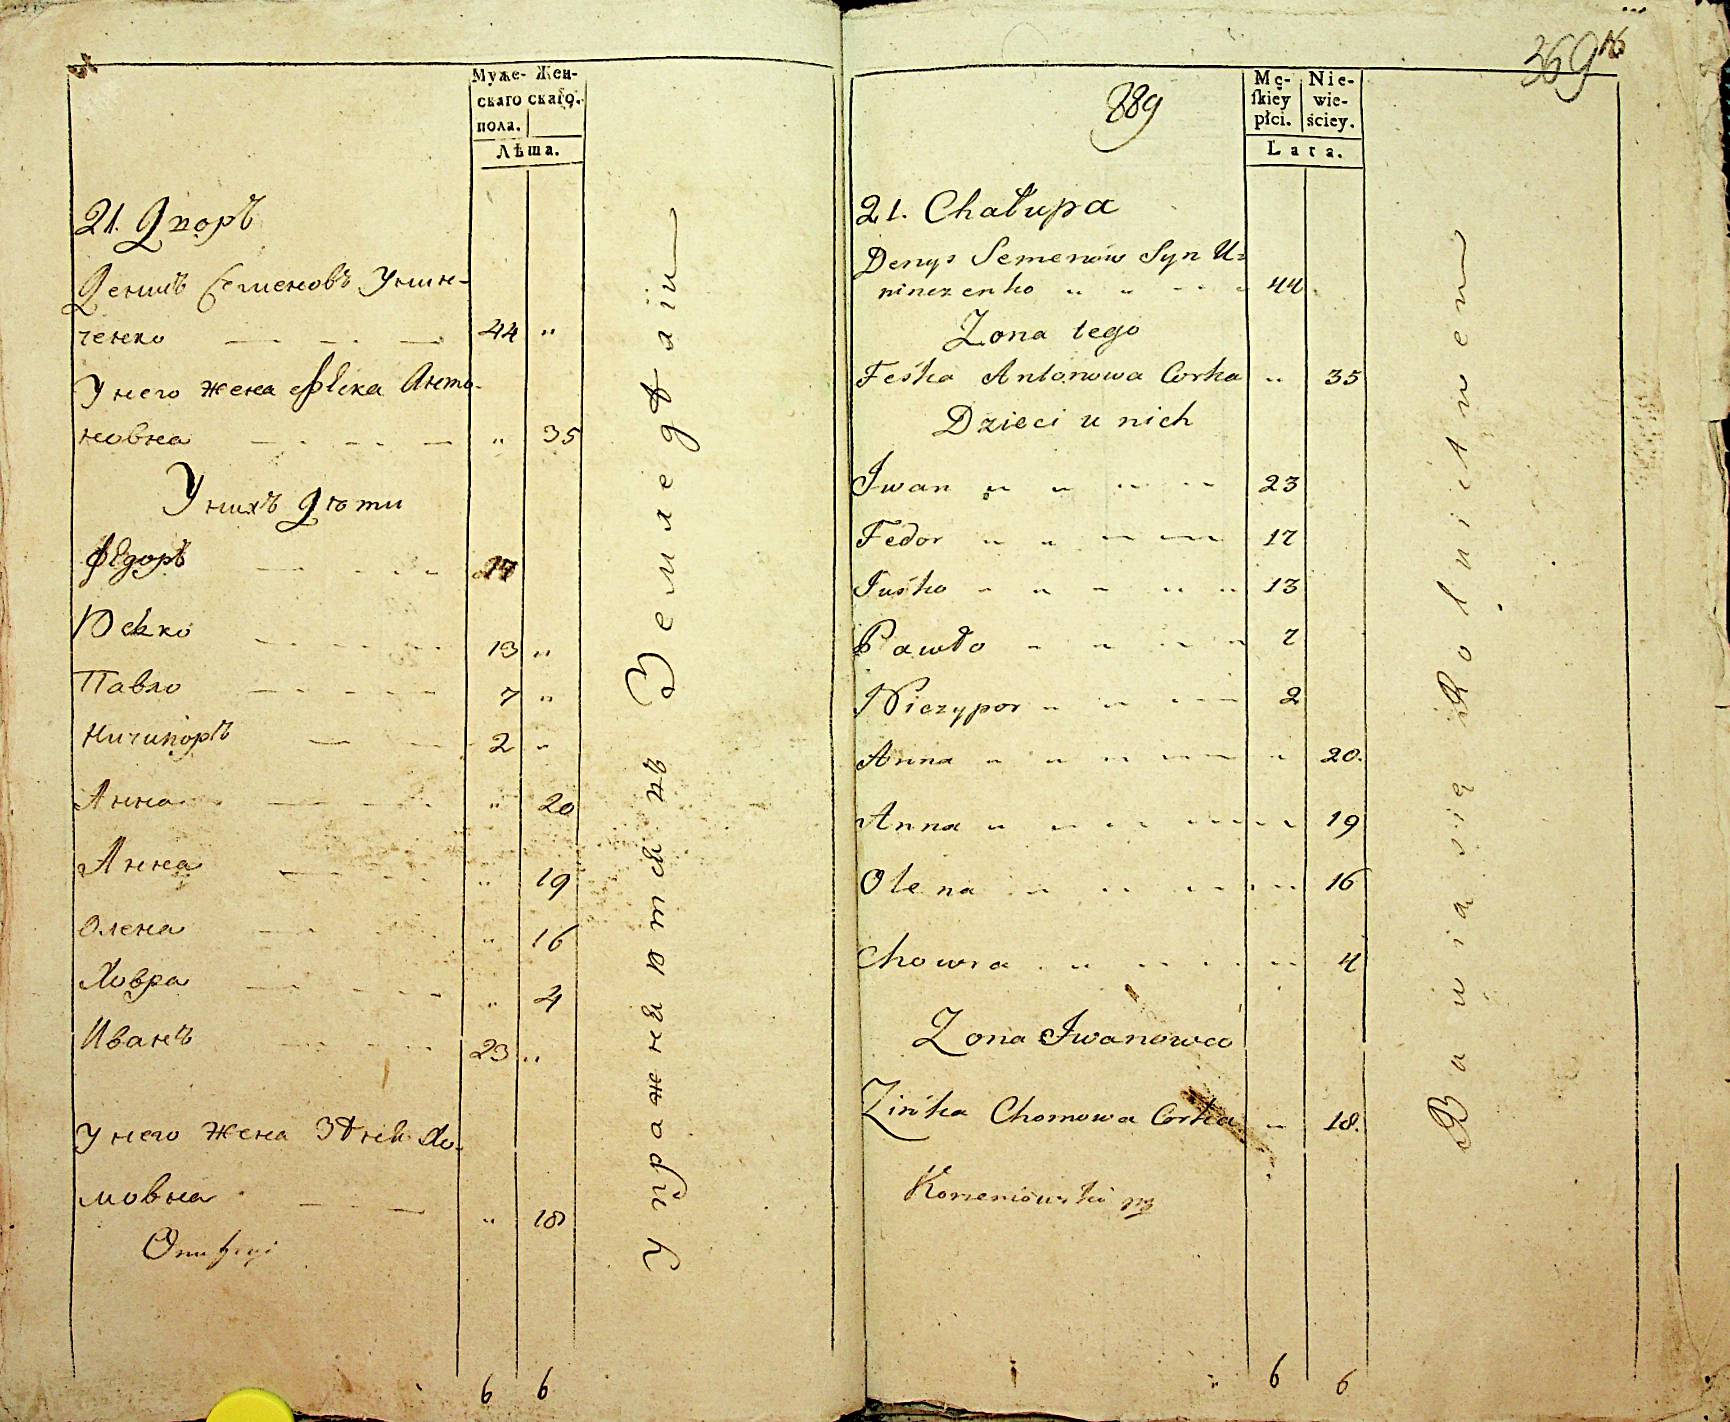 Муже- Жен-
скаго скаго.
пола.
Лѣта.
21. Дворъ
Денисъ Семеновъ Унин-
ченко 44 "
У него жена Феска Анто-
новна " 35
У нихъ дѣти
Федоръ 17
Юско 13 "
Павло 7 "
Ничипоръ 2 "
Анна " 20
Анна " 19
Олена " 16
Ховра " 4
Иванъ 23 "
У него жена Зѣнка Хо-
мовна " 18
6 6
Упражняются въ Земледѣліи
369
889
Mę- Nie-
skiey wie-
płci. ściey.
Lata.
21. Chałupa
Denys Semenów Syn U=
ninczenko " " 44
Zona tego
Feśka Antonowa Corka " 35
Dzieci u nich
Iwan " " " " 23
Fedor " " " " 17
Juśko " " " " " 13
Pawło " " " " 7
Niczypor " " " 2
Anna " " " " " 20.
Anna " " " " " 19
Olena " " " " " 16
Chowra " " " " 4
Zona Iwanowa
Zińka Chomowa Corka " 18.
6 6
Bawia się Rolnictwem